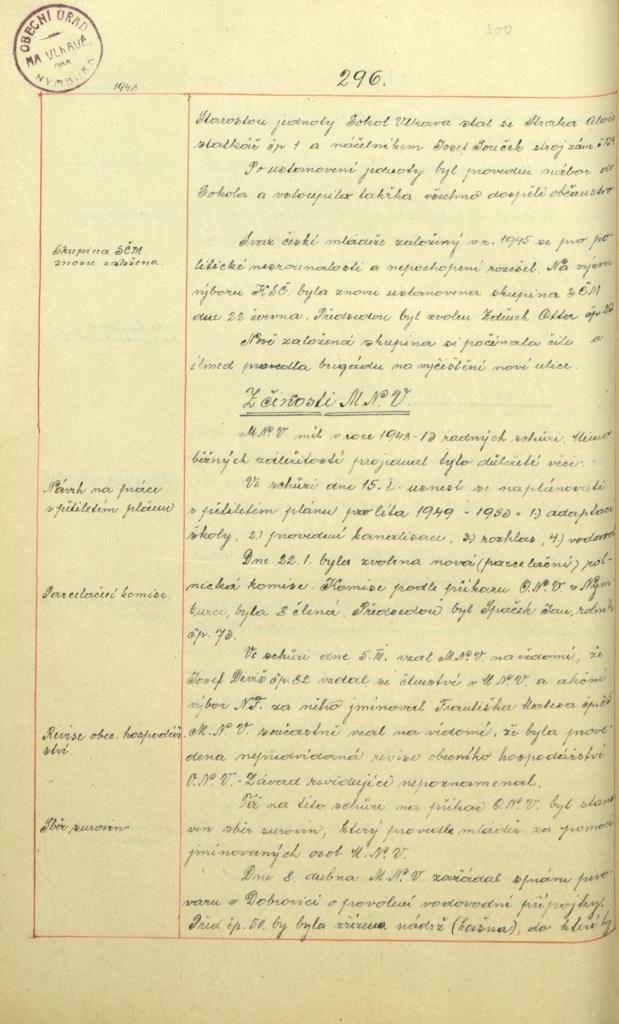 OBECNÍ ÚŘAD
NA VLKAVĚ
NYMBURK
1948
296.
Starostou jednoty Sokol Vlkava stal se Straka Alois
statkář čp 1 a náčelníkem Josef Souček stroj. zám. č 134
Po ustanovení jednoty byl proveden nábor do
Sokola a vstoupilo takřka všechno dospělé občanstvo
Skupina SČM
znovu založena.
Svaz české mládeže založený v r. 1945 se pro po
litické nesrovnalosti a nepochopení rozešel. Na výzvu
výboru KSČ. byla znovu ustanovena skupina SČM
dne 22 června. Předsedou byl zvolen Zdeněk Otta čp
Nově založená skupina si počínala čile a
ihned provedla brigádu na vyčištění nové ulice.
Z činosti M.N.V.
M.N.V. měl v roce 1948 - 13 řádných schůzí. Mimo
běžných záležitostí projednal tyto důležité věci.
Návrh na práce
v pětiletém plánu
Ve schůzi dne 15. I. usnesl se naplánovati
v pětiletém plánu pro léta 1949 - 1953 - 1.) adaptaci
školy, 2.) provedení kanalisace, 3.) rozhlas, 4.) vodovod
Parcelační komise.
Dne 22. I. byla zvolena nová (parcelační) rol-
nická komise. Komise podle příkazu O.N.V. v Nym
burce, byla 8 členná. Předsedou byl Špaček Jan, rolník
čp. 73.
Ve schůzi dne 5. III. vzal M.N.V. na vědomí, že
Josef Diviš čp. 82 vzdal se členství v M.N.V. a akční
výbor N.F. za něho jmenoval Františka čp.
Revise obec. hospodář
ství.
M.N.V. současně vzal na vědomí, že byla prove
dena nepředvídaná revise obecního hospodářství
O.N.V. - Závad revidující nepoznamenal.
Sběr surovin
Též na této schůzi na příkaz O.N.V. byl stano
ven sběr surovin, který provedle mládež za pomoci
jmenovaných osob M.N.V.
Dne 8. dubna M.N.V. zažádal správu pivo
varu v Dobrovici o povolení vodovodní přípojky.
Před čp. 50. by byla zřízena nádrž (kašna), do které by